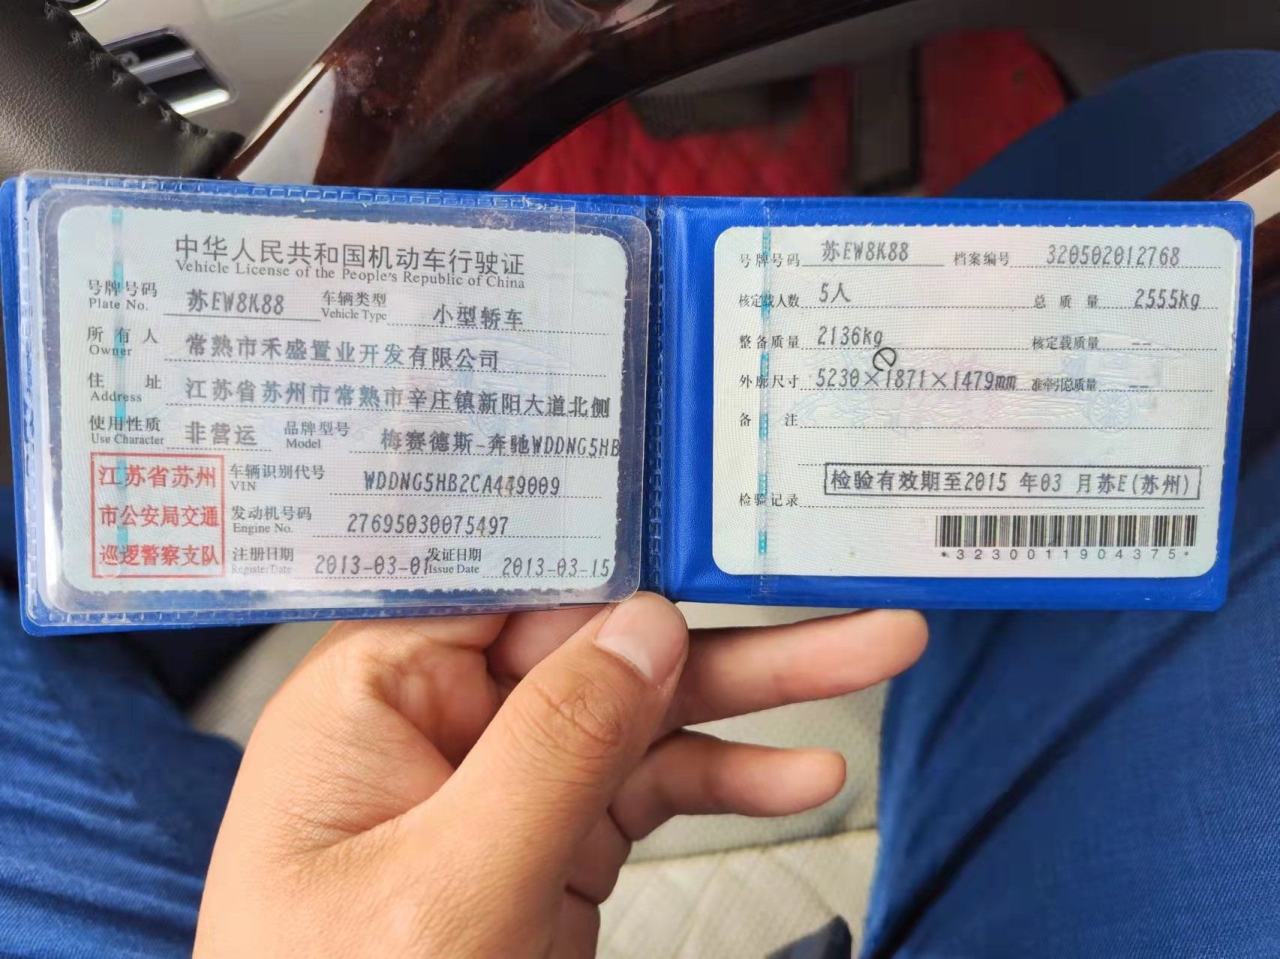 中华人民共和国机动车行驶证
Vehicle License of the People's Republic of China
号牌号码 苏EW8K88 车辆类型 小型轿车
Plate No. Vehicle Type
所有人 常熟市禾盛置业开发有限公司
Owner
住址 江苏省苏州市常熟市辛庄镇新阳大道北侧
Address
使用性质 非营运 品牌型号 梅赛德斯-奔驰WDDNG5HB
Use Character Model
江苏省苏州
市公安局交通
巡逻警察支队
车辆识别代号 WDDNG5HB2CA449009
VIN
发动机号码 27695030075497
Engine No.
注册日期 2013-03-01 发证日期 2013-03-15
Register Date Issue Date
号牌号码 苏EW8K88 档案编号 320502012768
核定载人数 5人 总质量 2555kg
整备质量 2136kg 核定载质量 --
外廓尺寸 5230×1871×1479mm 准牵引总质量 --
备注
检验记录 检验有效期至2015 年03 月苏E(苏州)
*3230011904375*